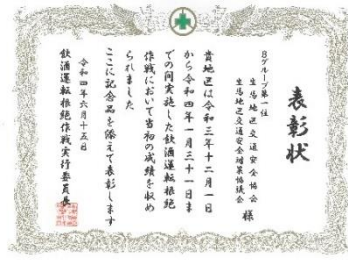 表彰状
Bグループ第一位
生馬地区交通安全協会
生馬地区交通安全対策協議会 様
貴地区は令和三年十二月一日
から令和四年一月三十一日ま
での間実施した飲酒運転根絶
作戦において当初の成績を収め
られました
ここに記念品を添えて表彰します
令和四年六月十五日
飲酒運転根絶作戦実行委員長